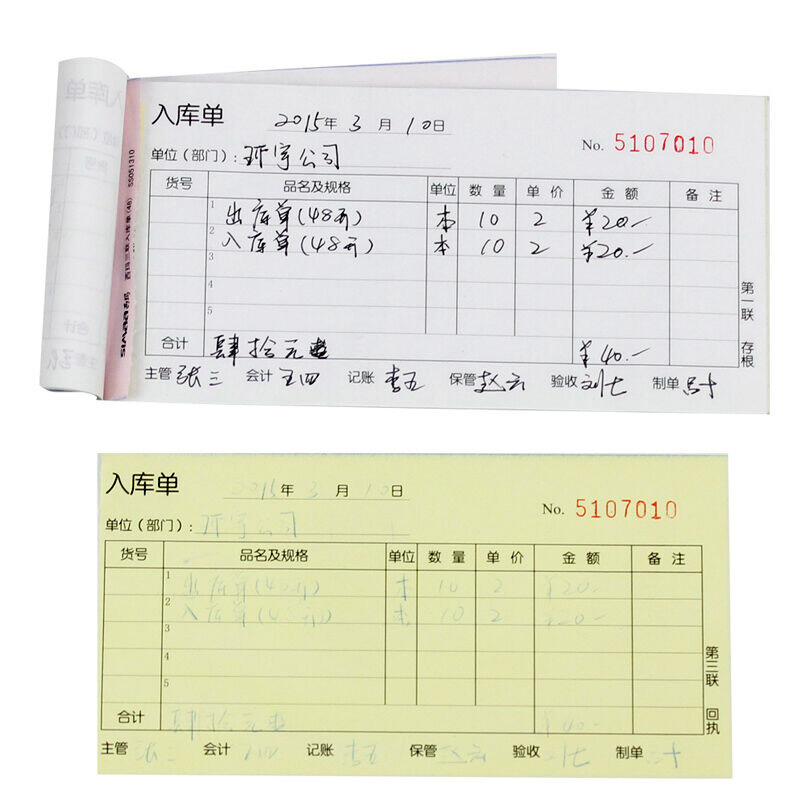 入库单
2015年3月10日
No. 5107010
单位(部门): 环宇公司
货号 品名及规格 单位 数量 单价 金额 备注
1 出库单(48开) 本 10 2 ¥20.-
2 入库单(48开) 本 10 2 ¥20.-
3
4
5
合计 肆拾元 ¥40.-
主管 张三 会计 王四 记账 李五 保管 赵六 验收 刘七 制单
第一联 存根
西玛三联入库单(48) SS051310
SIMAA西玛
入库单
2015年3月10日
No. 5107010
单位(部门): 环宇公司
货号 品名及规格 单位 数量 单价 金额 备注
1 出库单(48开) 本 10 2 ¥20.-
2 入库单(48开) 本 10 2 ¥20.-
3
4
5
合计 肆拾元 ¥40.-
主管 张三 会计 王四 记账 李五 保管 赵六 验收 刘七 制单
第三联 回执